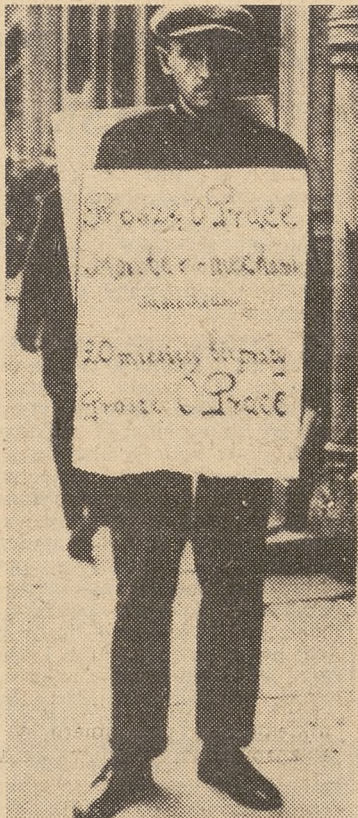 Proszę O Pracę
Monter-mechani
samochodowy
20 miesięcy bez pracy
Proszę O Pracę